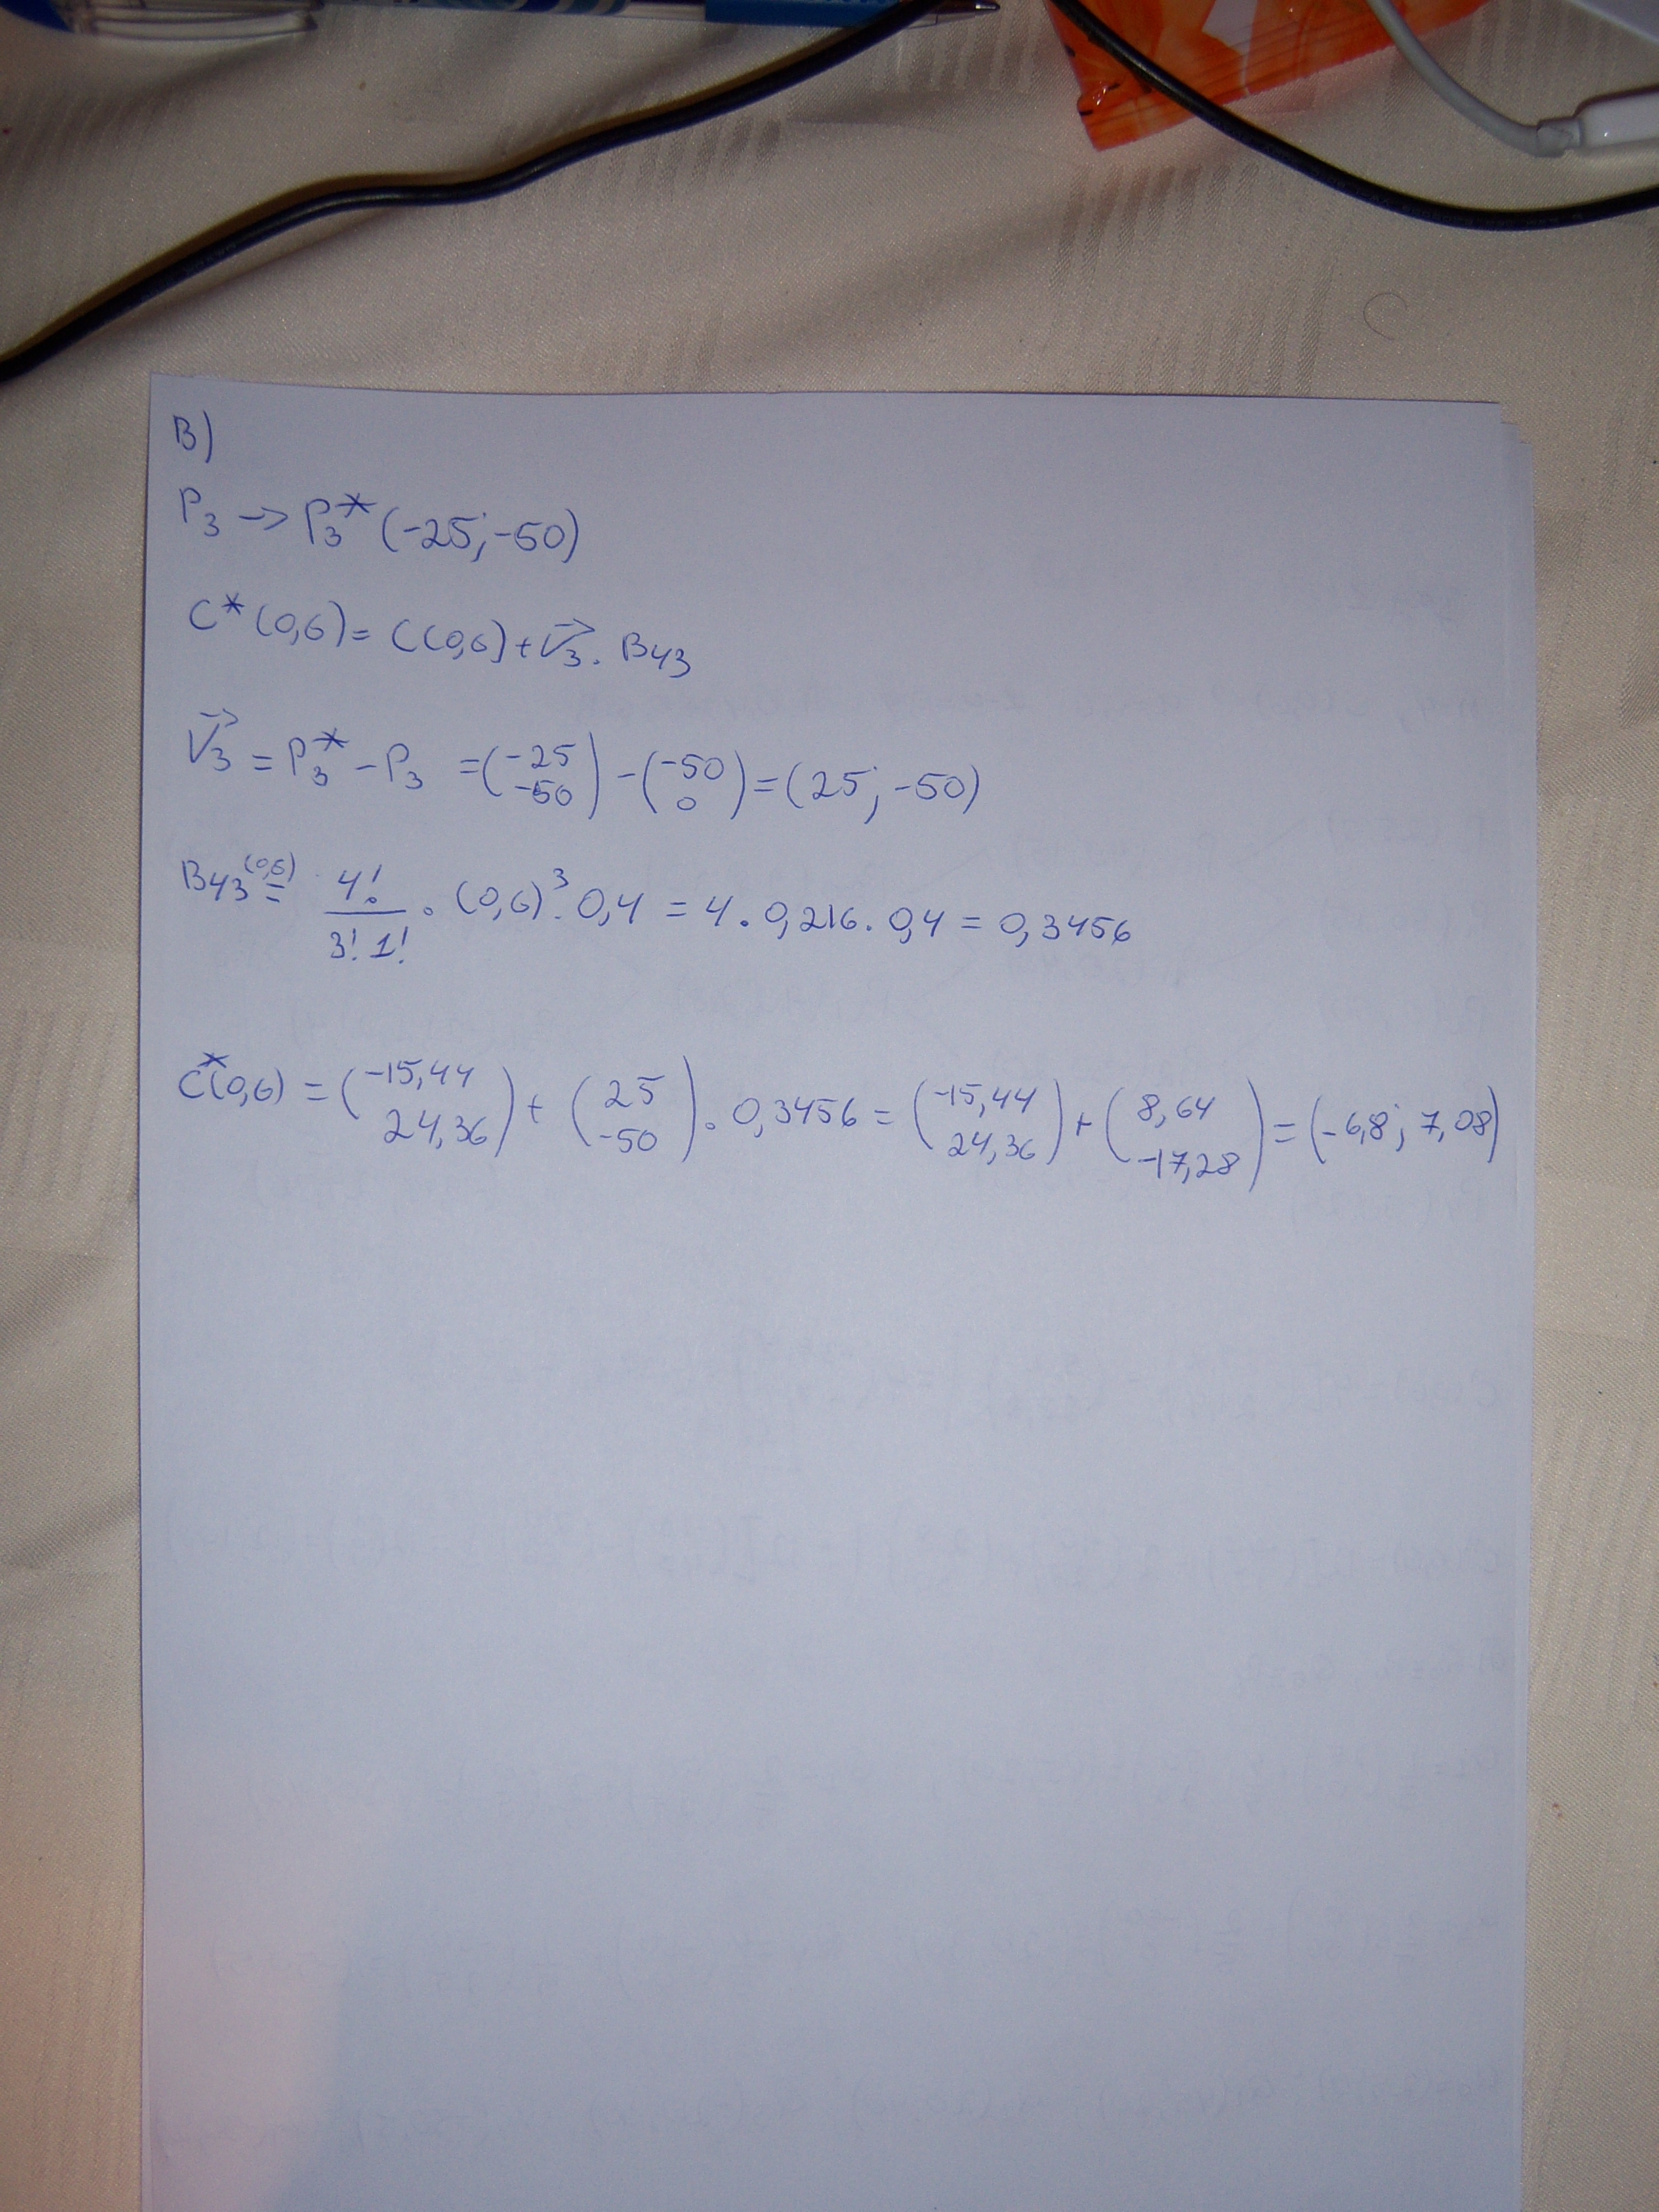 B)
P₃ -> P₃* (-25; -50)
C* (0,6) = C(0,6) + V₃. B₄₃
V₃ = P₃* - P₃ = (-25 -50) - (-50 0) = (25; -50)
B₄₃(0,6) = 4!/3! 1! . (0,6)³. 0,4 = 4. 0,216. 0,4 = 0,3456
C*(0,6) = (-15,44 24,36) + (25 -50). 0,3456 = (-15,44 24,36) + (8,64 -17,28) = (-6,8; 7,08)